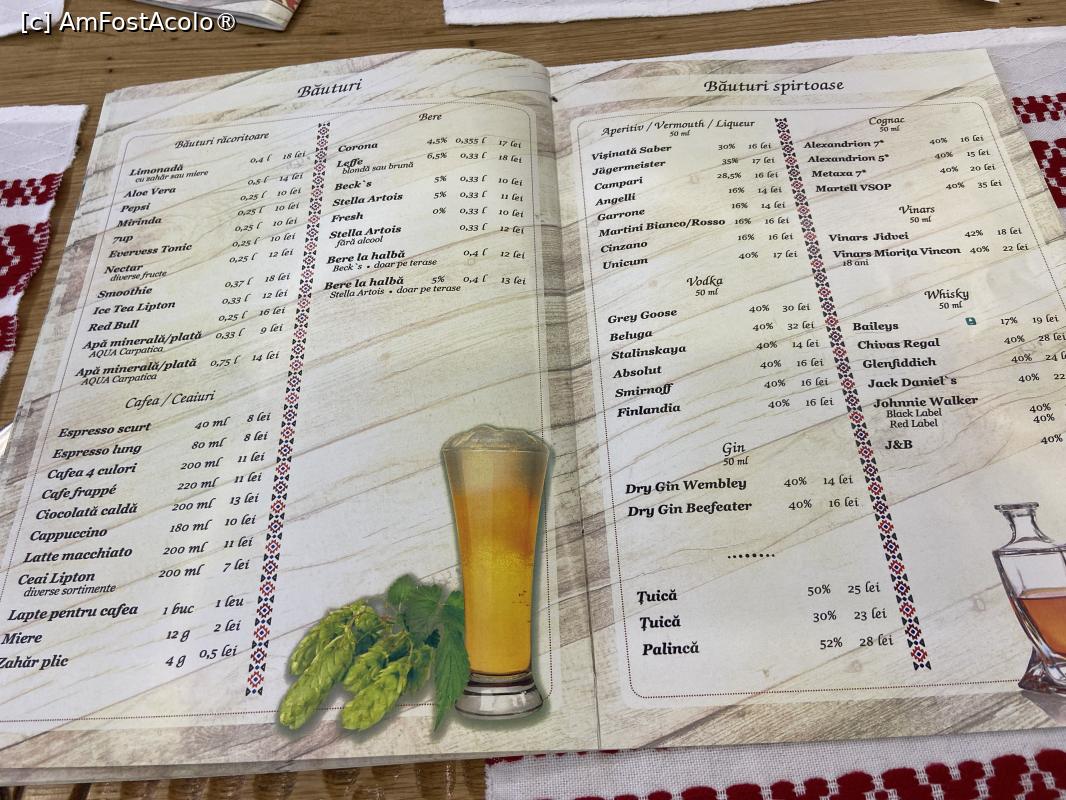 [c] AmFostAcolo®
Băuturi
Băuturi răcoritoare
Limonadă 0,4 l 18 lei
cu zahăr sau miere
Aloe Vera 0,5 l 14 lei
Pepsi 0,25 l 10 lei
Mirinda 0,25 l 10 lei
7up 0,25 l 10 lei
Evervess Tonic 0,25 l 10 lei
Nectar 0,25 l 12 lei
diverse fructe
Smoothie 0,37 l 18 lei
Ice Tea Lipton 0,33 l 12 lei
Red Bull 0,25 l 16 lei
Apă minerală/plată 0,33 l 9 lei
AQUA Carpatica
Apă minerală/plată 0,75 l 14 lei
AQUA Carpatica
Cafea / Ceaiuri
Espresso scurt 40 ml 8 lei
Espresso lung 80 ml 8 lei
Cafea 4 culori 200 ml 11 lei
Cafe frappé 220 ml 11 lei
Ciocolată caldă 200 ml 13 lei
Cappuccino 180 ml 10 lei
Latte macchiato 200 ml 11 lei
Ceai Lipton 200 ml 7 lei
diverse sortimente
Lapte pentru cafea 1 buc 1 leu
Miere 12 g 2 lei
Zahăr plic 4 g 0,5 lei
Bere
Corona 4,5% 0,355 l 17 lei
Leffe 6,5% 0,33 l 18 lei
blondă sau brună
Beck`s 5% 0,33 l 10 lei
Stella Artois 5% 0,33 l 11 lei
Fresh 0% 0,33 l 10 lei
Stella Artois 0,33 l 12 lei
fără alcool
Bere la halbă 0,4 l 12 lei
Beck`s • doar pe terase
Bere la halbă 5% 0,4 l 13 lei
Stella Artois • doar pe terase
Băuturi spirtoase
Aperitiv / Vermouth / Liqueur
50 ml
Vișinată Saber 30% 16 lei
Jägermeister 35% 17 lei
Campari 28,5% 16 lei
Angelli 16% 14 lei
Garrone 16% 14 lei
Martini Bianco/Rosso 16% 16 lei
Cinzano 16% 16 lei
Unicum 40% 17 lei
Vodka
50 ml
Grey Goose 40% 30 lei
Beluga 40% 32 lei
Stalinskaya 40% 14 lei
Absolut 40% 16 lei
Smirnoff 40% 16 lei
Finlandia 40% 16 lei
Gin
50 ml
Dry Gin Wembley 40% 14 lei
Dry Gin Beefeater 40% 16 lei
Țuică 50% 25 lei
Țuică 30% 23 lei
Palincă 52% 28 lei
Cognac
50 ml
Alexandrion 7* 40% 16 lei
Alexandrion 5* 40% 15 lei
Metaxa 7* 40% 20 lei
Martell VSOP 40% 35 lei
Vinars
50 ml
Vinars Jidvei 42% 18 lei
Vinars Miorița Vincon 40% 22 lei
18 ani
Whisky
50 ml
Baileys 17% 19 lei
Chivas Regal 40% 28 lei
Glenfiddich 40% 24 l
Jack Daniel`s 40% 22
Johnnie Walker
Black Label 40%
Red Label 40%
J&B 40%